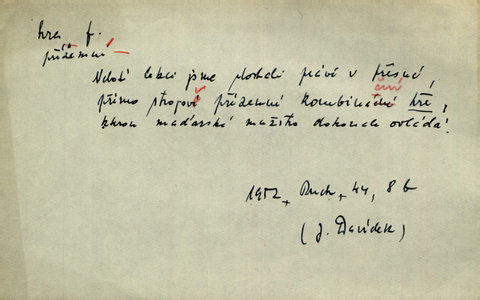 hra f.
přízemní
lekci jsme dostali právě v přesné,
přímo strojové přízemní kombinační hře,
kterou maďarské mužstvo dokonale ovládá!
1952, Ruch, 44, 8b
(J. Davídek)